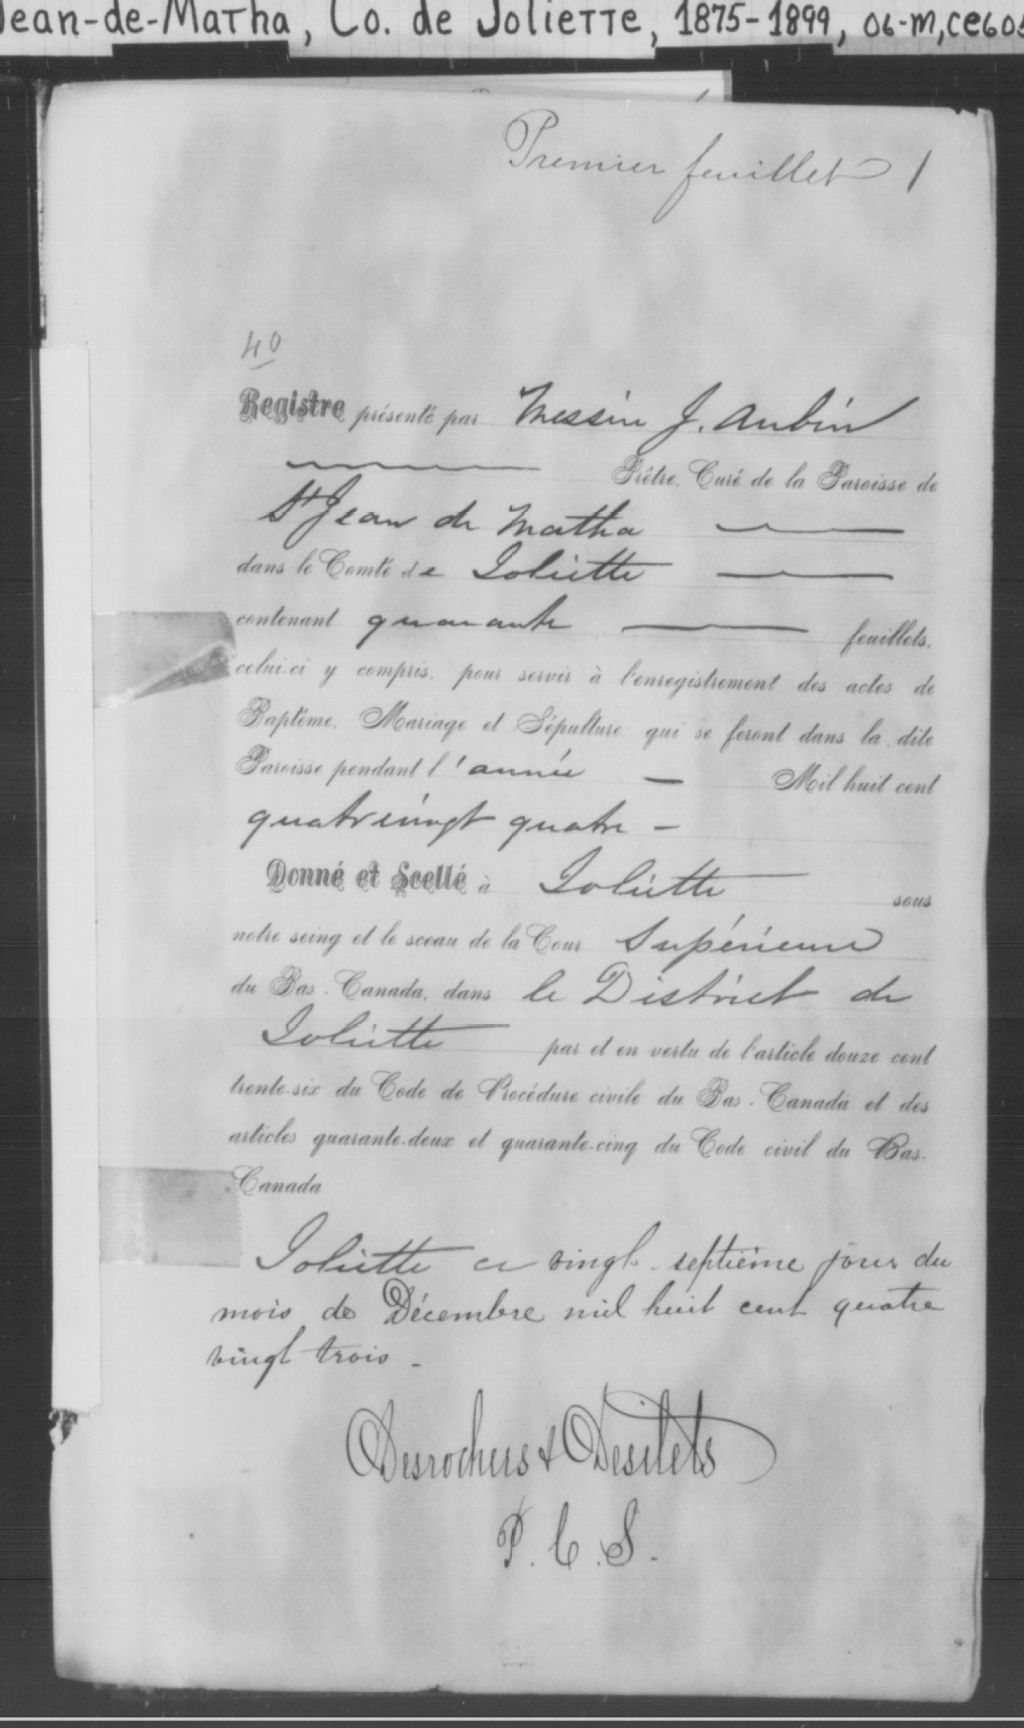 Jean-de-Matha, Co. de Joliette, 1875-1899, 06-M, CE605
Premier feuillet 1
40
Registre présenté par Messire J. Aubin
Prêtre, Curé de la Paroisse de
St Jean de Matha
dans le Comté de Joliette
contenant quarante feuillets,
celui-ci y compris, pour servir à l'enregistrement des actes de
Baptême, Mariage et Sépulture qui se feront dans la dite
Paroisse pendant l'année — Mil huit cent
quatrevingt quatre —
Donné et Scellé à Joliette sous
notre seing et le sceau de la Cour Supérieure
du Bas-Canada, dans le District de
Joliette par et en vertu de l'article douze cent
trente-six du Code de Procédure civile du Bas-Canada et des
articles quarante-deux et quarante-cinq du Code civil du Bas-
Canada
Joliette ce vingt-septième jour du
mois de Décembre mil huit cent quatre
vingt trois -
Desrochers & Desilets
P. C. S.